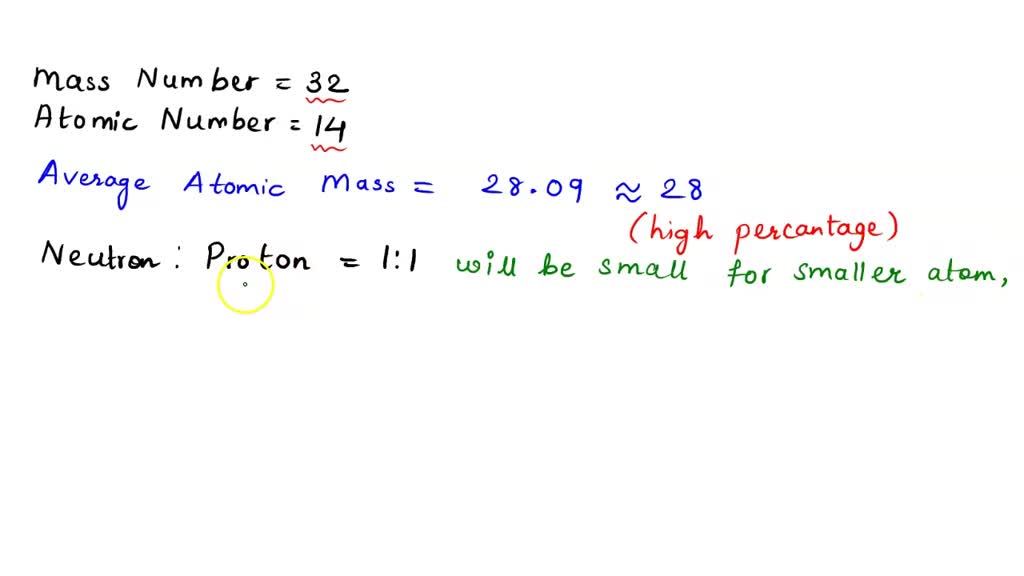 Mass Number = 32
Atomic Number = 14
Average Atomic Mass = 28.09 ≈ 28
(high percantage)
Neutron : Proton = 1:1 will be small for smaller atom,